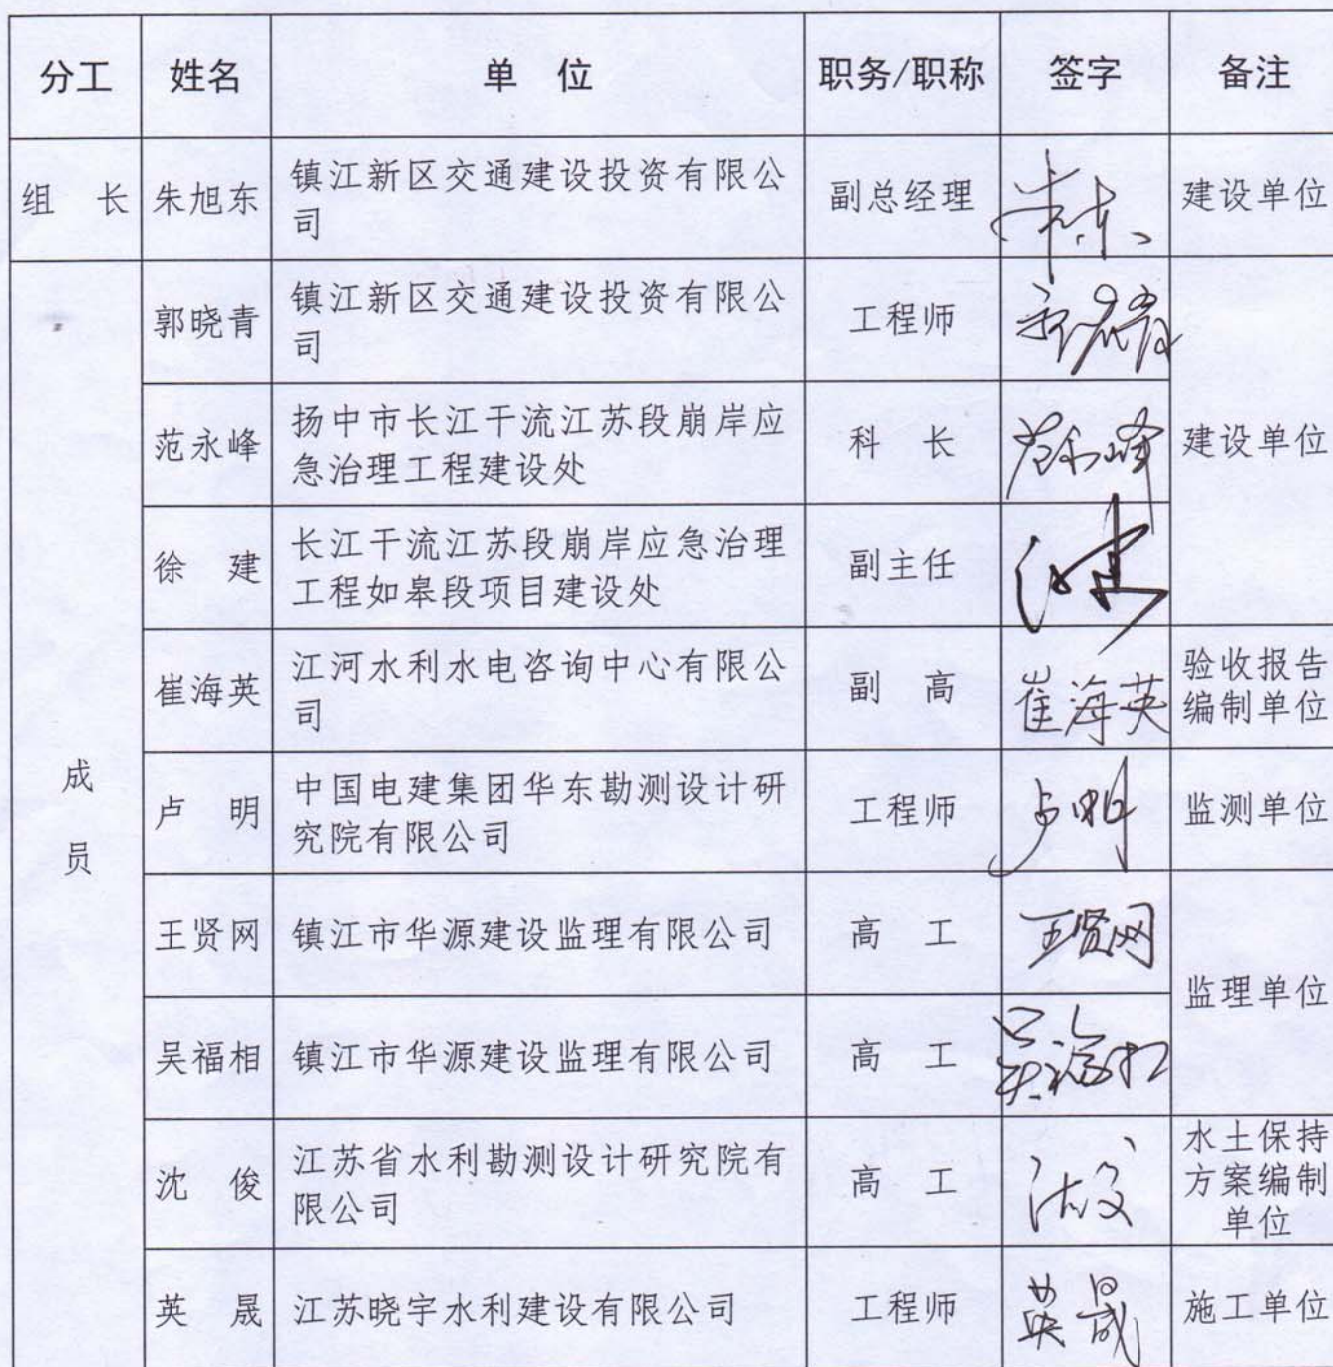 分工 姓名 单 位 职务/职称 签字 备注
组 长 朱旭东 镇江新区交通建设投资有限公
司 副总经理 建设单位
成
员
郭晓青 镇江新区交通建设投资有限公
司 工程师
范永峰 扬中市长江干流江苏段崩岸应
急治理工程建设处 科 长 范永峰 建设单位
徐 建 长江干流江苏段崩岸应急治理
工程如皋段项目建设处 副主任
崔海英 江河水利水电咨询中心有限公
司 副 高 崔海英 验收报告
编制单位
卢 明 中国电建集团华东勘测设计研
究院有限公司 工程师 卢明 监测单位
王贤网 镇江市华源建设监理有限公司 高 工 王贤网
监理单位
吴福相 镇江市华源建设监理有限公司 高 工 吴福相
沈 俊 江苏省水利勘测设计研究院有
限公司 高 工 水土保持
方案编制
单位
英 晟 江苏晓宇水利建设有限公司 工程师 英晟 施工单位